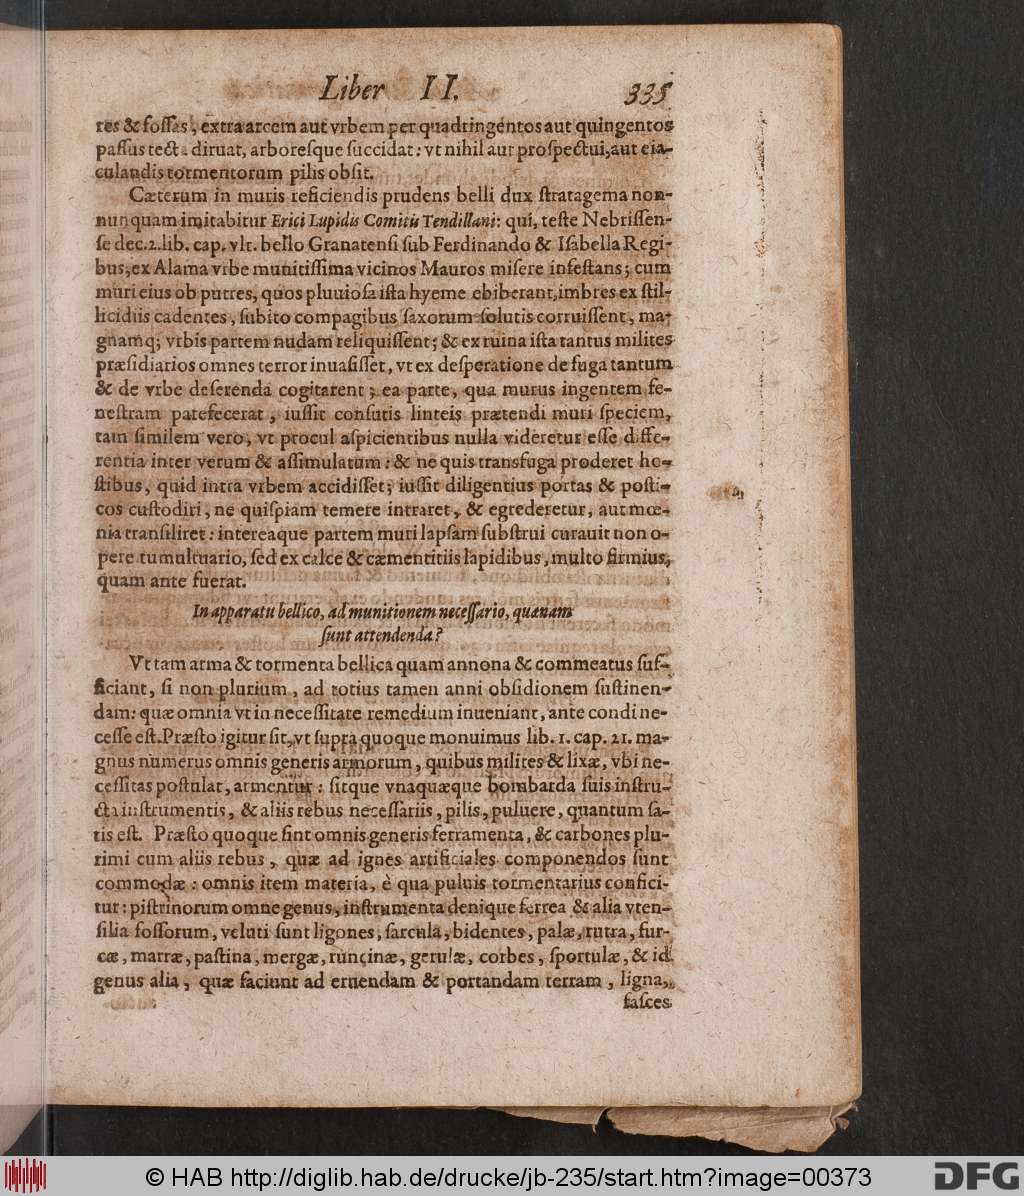 Liber II. 335
res & foſſas, extra arcem aut vrbem per quadringentos aut quingentos
paſſus tecta diruat, arboreſque ſuccidat: vt nihil aut proſpectui, aut eia-
culandis tormentorum pilis obſit.
Cæterum in muris reficiendis prudens belli dux ſtratagema non-
nunquam imitabitur Erici Lupidis Comitis Tendillani: qui, teſte Nebriſſen-
ſe dec. 2. lib. cap. vlt. bello Granatenſi ſub Ferdinando & Iſabella Regi-
bus, ex Alama vrbe munitiſſima vicinos Mauros miſere infeſtans; cum
muri eius ob putres, quos pluuioſa iſta hyeme ebiberant, imbres ex ſtil-
licidiis cadentes, ſubito compagibus ſaxorum ſolutis corruiſſent, ma-
gnamq; vrbis partem nudam reliquiſſent; & ex ruina iſta tantus milites
præſidiarios omnes terror inuaſiſſet, vt ex deſperatione de fuga tantum
& de vrbe deſerenda cogitarent; ea parte, qua murus ingentem fe-
neſtram patefecerat, iuſſit conſutis linteis prætendi muri ſpeciem,
tam ſimilem vero, vt procul aſpicientibus nulla videretur eſſe diffe-
rentia inter verum & aſſimulatum: & ne quis transfuga proderet ho-
ſtibus, quid intra vrbem accidiſſet; iuſſit diligentius portas & poſti-
cos cuſtodiri, ne quiſpiam temere intraret, & egrederetur, aut mœ-
nia tranſiliret: intereaque partem muri lapſam ſubſtrui curauit non o-
pere tumultuario, ſed ex calce & cæmentitiis lapidibus, multo firmius,
quam ante fuerat.
In apparatu bellico, ad munitionem neceſſario, quænam
ſunt attendenda?
Vt tam arma & tormenta bellica quam annona & commeatus ſuf-
ficiant, ſi non plurium, ad totius tamen anni obſidionem ſuſtinen-
dam: quæ omnia vt in neceſſitate remedium inueniant, ante condi ne-
ceſſe eſt. Præſto igitur ſit, vt ſupra quoque monuimus lib. 1. cap. 21. ma-
gnus numerus omnis generis armorum, quibus milites & lixæ, vbi ne-
ceſſitas poſtulat, armentur: ſitque vnaquæque bombarda ſuis inſtru-
cta inſtrumentis, & aliis rebus neceſſariis, pilis, puluere, quantum ſa-
tis eſt. Præſto quoque ſint omnis generis ferramenta, & carbones plu-
rimi cum aliis rebus, quæ ad ignes artificiales componendos ſunt
commodæ: omnis item materia, è qua puluis tormentarius confici-
tur: piſtrinorum omne genus, inſtrumenta denique ferrea & alia vten-
ſilia foſſorum, veluti ſunt ligones, ſarcula, bidentes, palæ, rutra, fur-
cæ, marræ, paſtina, mergæ, runcinæ, gerulæ, corbes, ſportulæ, & id
genus alia, quæ faciunt ad eruendam & portandam terram, ligna,
faſces
© HAB http://diglib.hab.de/drucke/jb-235/start.htm?image=00373
DFG